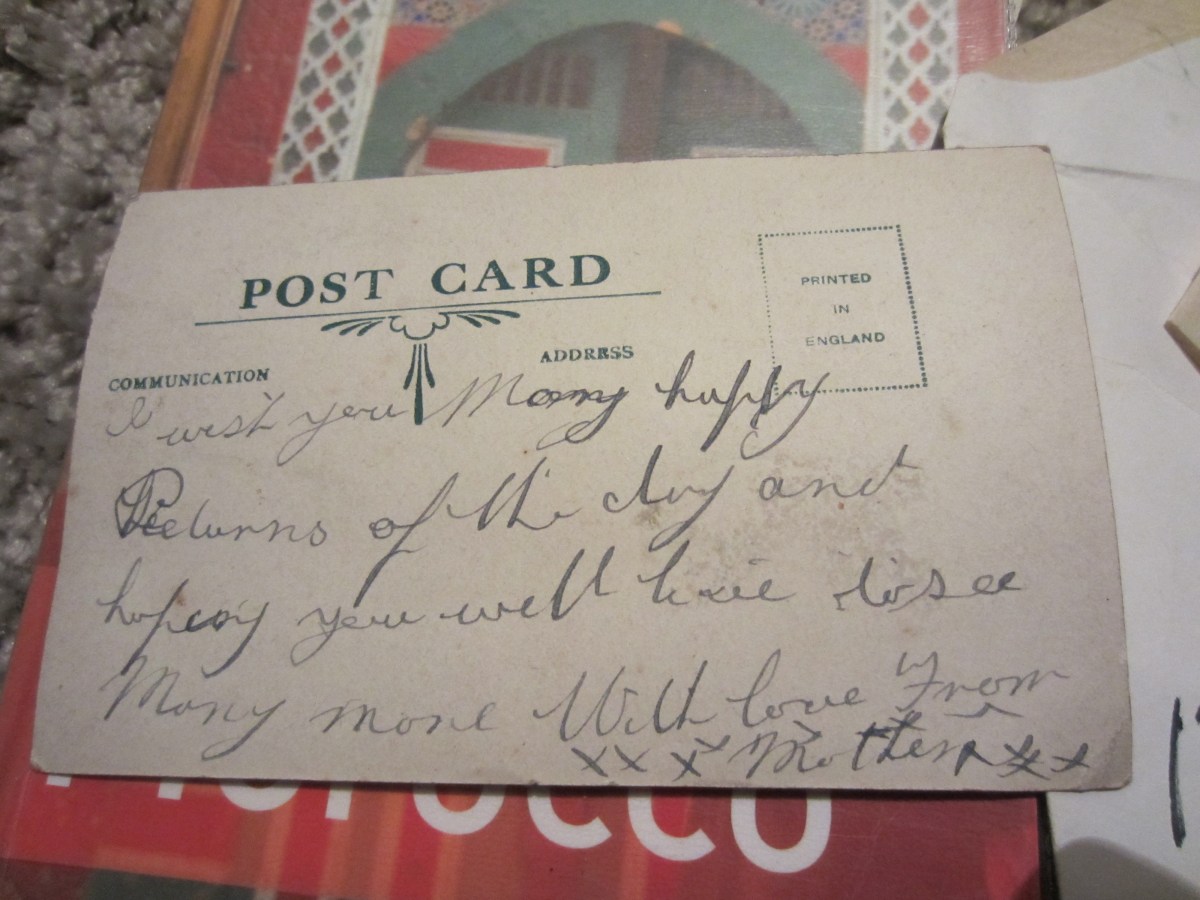 POST CARD
PRINTED
IN
ENGLAND
COMMUNICATION
ADDRESS
I wish you Many happy
Returns of the day and
hoping you will live to see
Many more With love From
xxx Mother xxx
MOROCCO